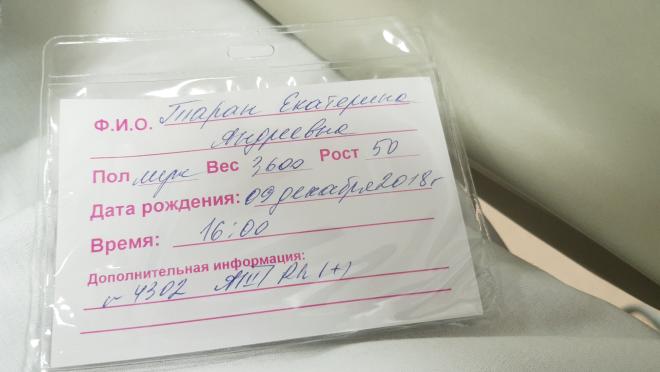 Ф.И.О. Таран Екатерина
Андреевна
Пол муж Вес 3,600 Рост 50
Дата рождения: 09 декабря 2018 г
Время: 16:00
Дополнительная информация:
4302 Rh (+)